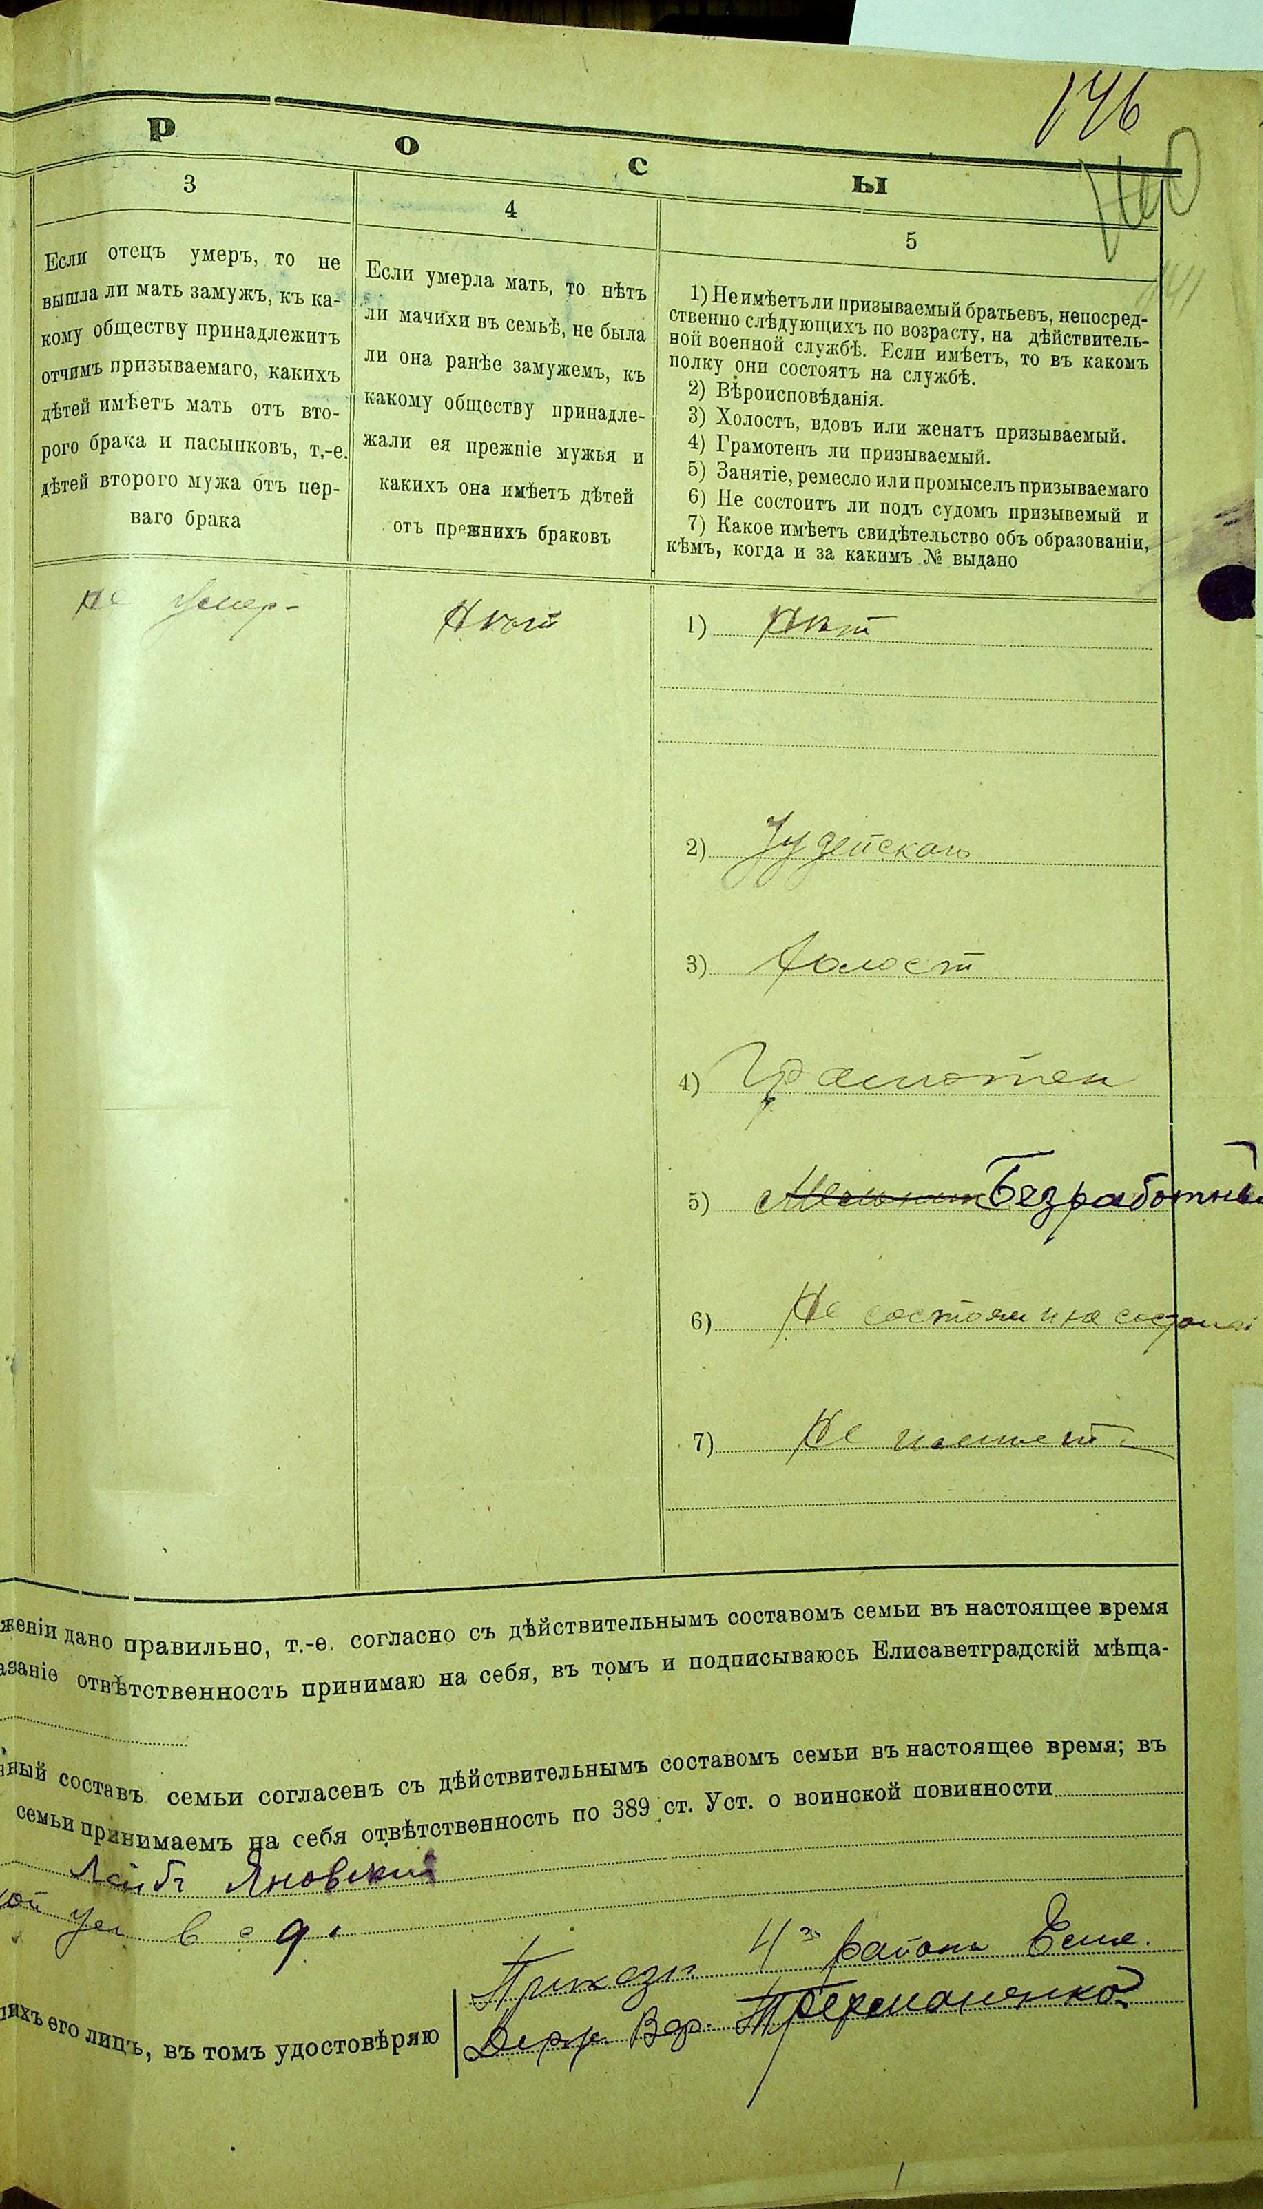 146
Р о с ы
3
Если отецъ умеръ, то не
вышла ли мать замужъ, къ ка-
кому обществу принадлежитъ
отчимъ призываемаго, какихъ
дѣтей имѣетъ мать отъ вто-
рого брака и пасынковъ, т.-е.
дѣтей второго мужа отъ пер-
ваго брака
не умер
4
Если умерла мать, то нѣтъ
ли мачихи въ семьѣ, не была
ли она ранѣе замужемъ, къ
какому обществу принадле-
жали ея прежніе мужья и
какихъ она имѣетъ дѣтей
отъ прежнихъ браковъ
Нѣт
5
1) Не имѣетъ ли призываемый братьевъ, непосред-
ственно слѣдующихъ по возрасту, на дѣйствитель-
ной военной службѣ. Если имѣетъ, то въ какомъ
полку они состоятъ на службѣ.
2) Вѣроисповѣданія.
3) Холостъ, вдовъ или женатъ призываемый.
4) Грамотенъ ли призываемый.
5) Занятіе, ремесло или промыселъ призываемаго
6) Не состоитъ ли подъ судомъ призывемый и
7) Какое имѣетъ свидѣтельство объ образованіи,
кѣмъ, когда и за какимъ № выдано
1) Нѣт
2) Іудейскаго
3) Холост
4) Грамотен
5) Безработный
6) Не состоял и не
7) Не имеет
женіи дано правильно, т.-е. согласно съ дѣйствительнымъ составомъ семьи въ настоящее время
азаніе отвѣтственность принимаю на себя, въ томъ и подписываюсь Елисаветградскій мѣща-
нный составъ семьи согласенъ съ дѣйствительнымъ составомъ семьи въ настоящее время; въ
семьи принимаемъ на себя отвѣтственность по 389 ст. Уст. о воинской повинности
Лейбъ Яновский
9
4 района
шихъ его лицъ, въ томъ удостовѣряю